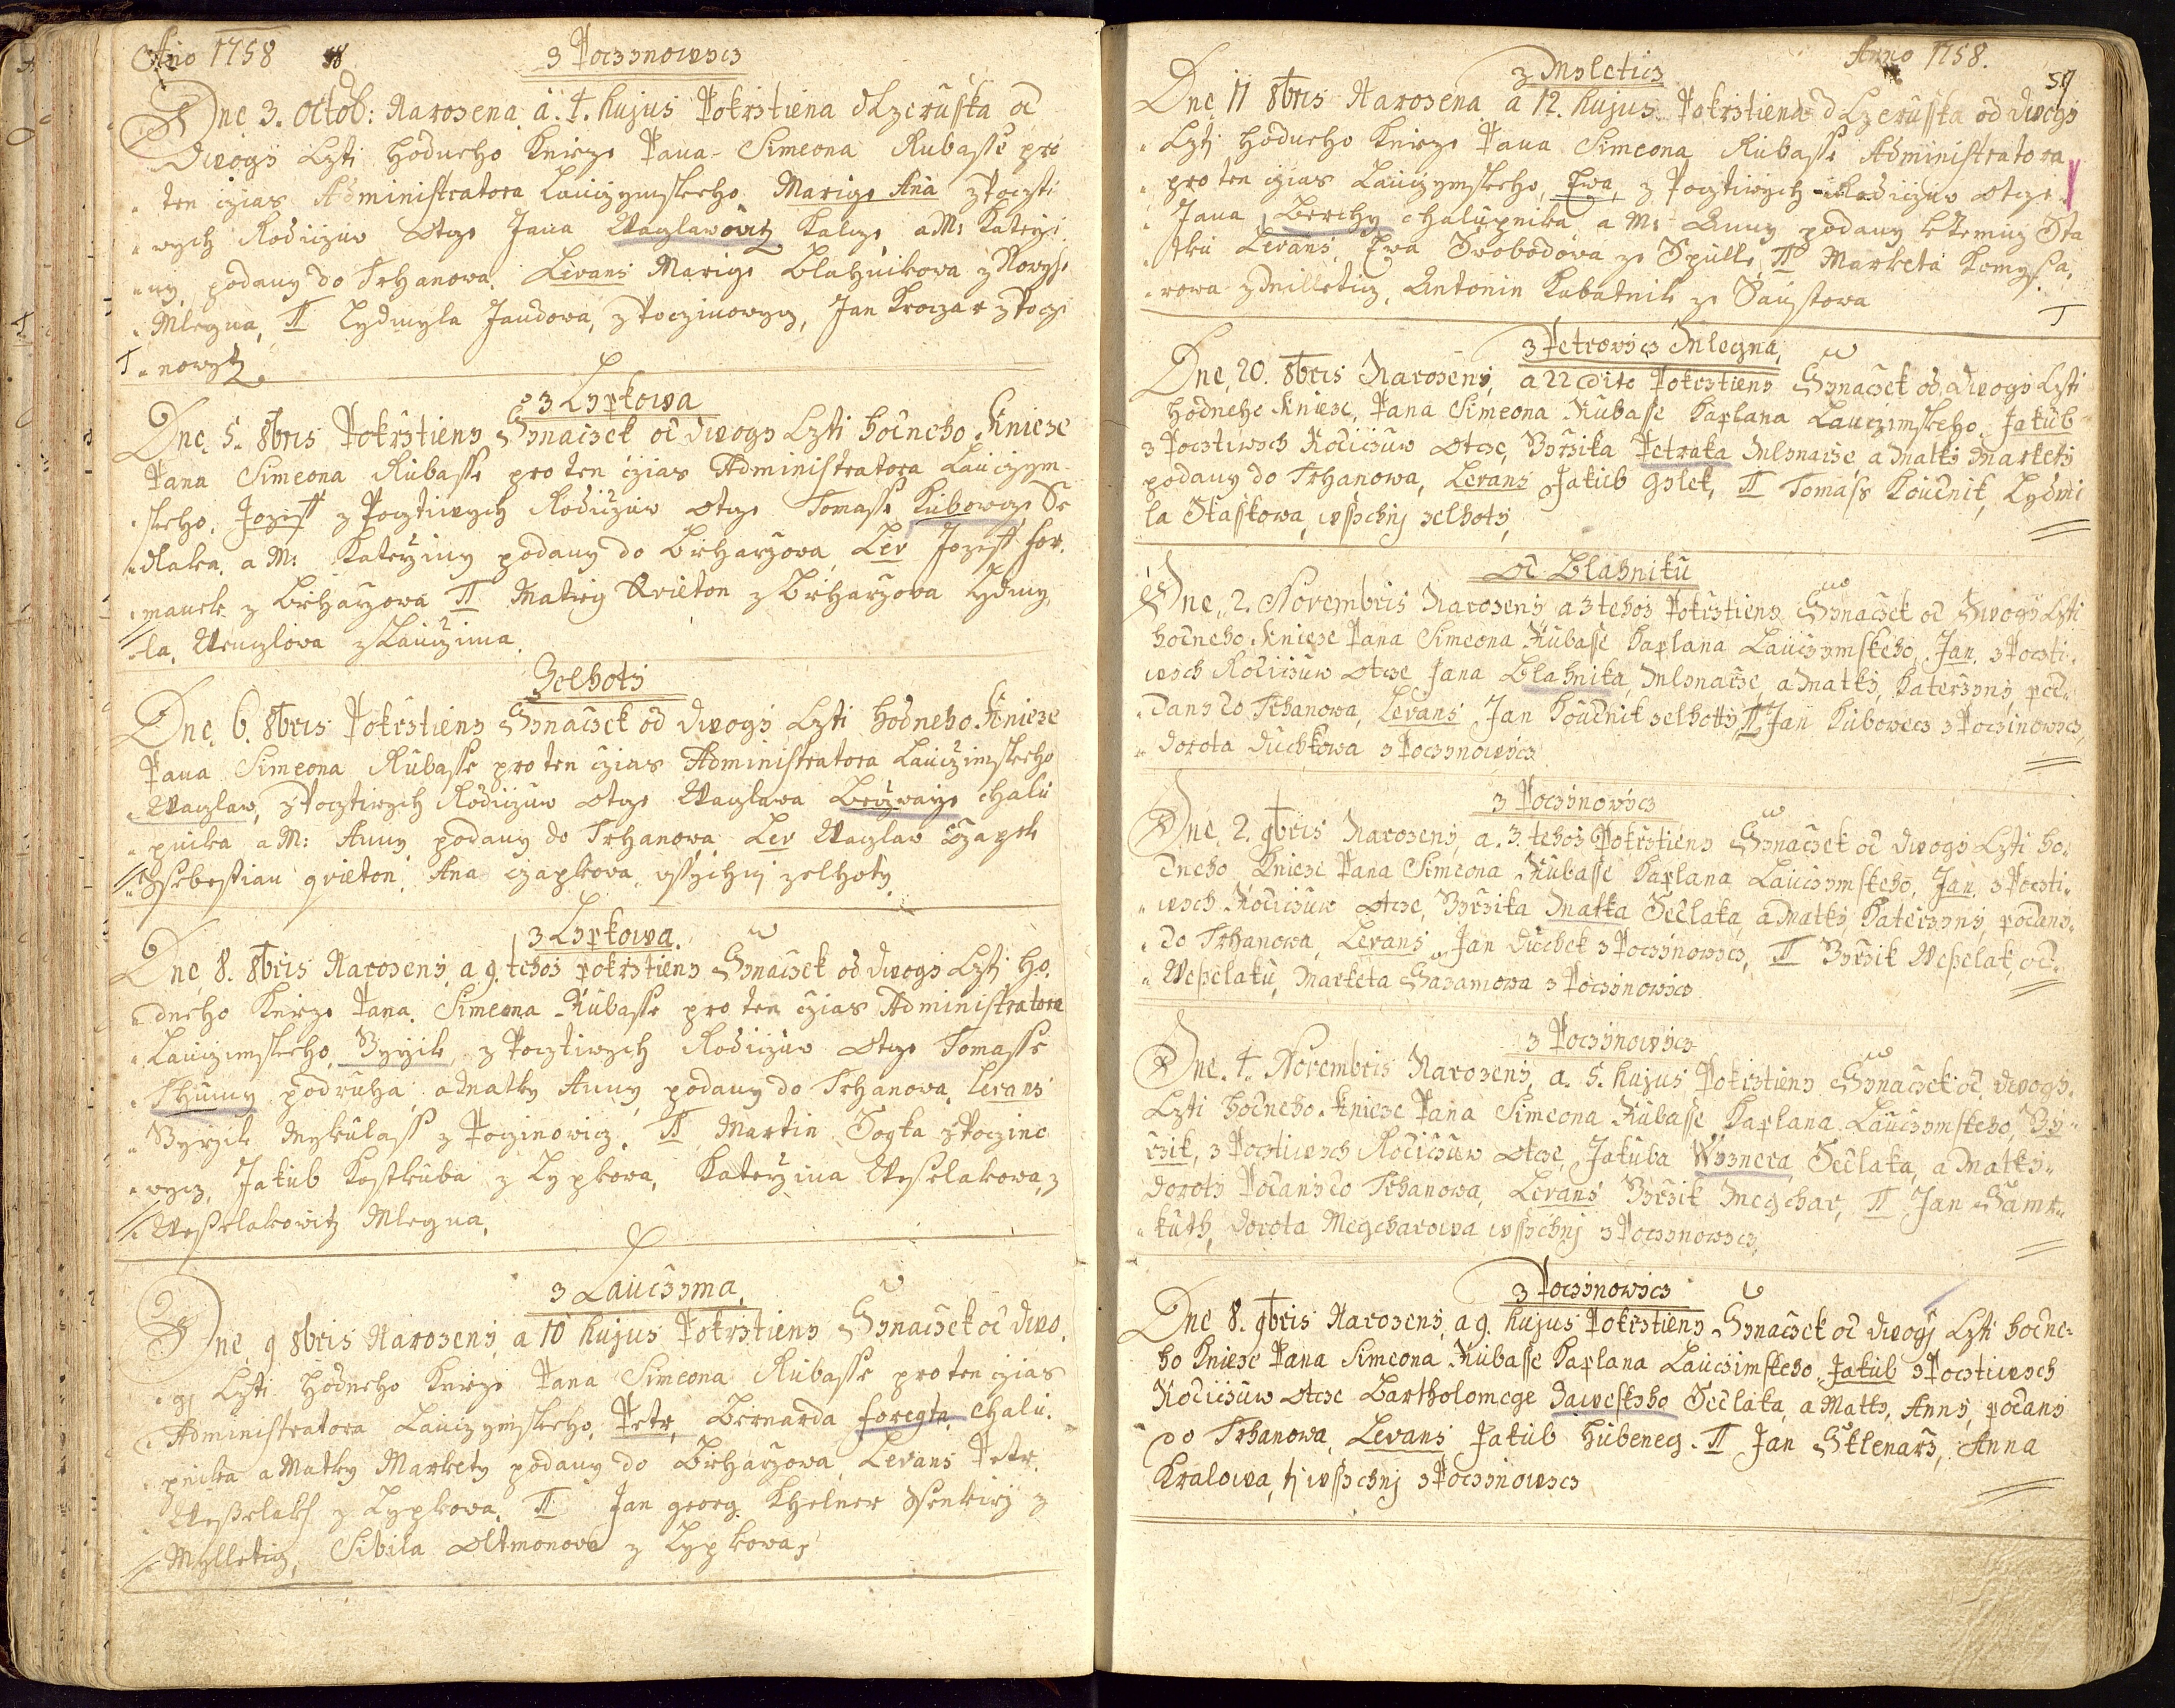 Ano 1758
z Pocznowicz
Dne 3. Octob: Narozena a. 4. hujus Pokrstiena dczeruska od
Dwogy Czti hodneho Knieze Pana Simeona Kubasse pro
ten czias Administratora Lauczymskeho Marige Ana z Poczti
wych Rodiczuw Otcze Jana Waczlawowitz Kalcze, a M: Katerzi
ny, podany do Trhanowa. Levans Marige Blahnikova z Nowyho
Mlegna, TT Lydmyla Jandowa, z Poczinowycz, Jan Kroczar z Pocze
nowytz
z Lypkowa
Dne 5. 8bris Pokrstieny Synaczek od dwogy Czti hodneho Knieze
Pana Simeona Kubasse pro ten czias Administratora Lauczym
skeho, Jozeff z Pocztiwych Rodiczuw otcze Tomasse Kubowcze Se
dlaka, a M: Katerziny podany do Brharzova, Lev Jozeff for
manek z Brharzova TT Matieg Kvieton z Brharzova Lydmy
la, Wenczlova z Lauczima.
Zelhoty
Dne 6. 8bris Pokrstieny Synaczek od dwogy Czti hodneho Knieze
Pana Simeona Kubasse pro ten czias Administratora Lauczimskeho
Waczlaw, z Pocztiwych Rodiczuw Otcze Waczlawa Brczwaize chalu
pnika a M: Anny podany do Trhanowa Lev Waczlav Czapek
Ssebestian qvieton, Ana czapkova, vssychni zelhoty
z Lypkowa.
Dne 8. 8bris Narozeny, a 9. tehoz pokrstieny Synaczek od Dwogy Czti ho
dneho Knieze Pana Simeona Kubasse pro ten czias Administratora
Lauczimskeho, Byrzik, z Pocztiwych Rodiczuw Otcze Tomasse
Thumy podruha, a Matky Anny, podany do Trhanowa, levans
Byrzik Mykulass z Poczinowicz, TT Martin Sogka z Poczino
wycz, Jakub Kostkuba z Lypkowa, Katerzina Wesselakowa, z
Wesselakowitz Mlegna,
z Lauczyma,
Dne 9 8bris Narozeny, a 10 hujus Pokrstieny Synaczek od dwo
gj Czti hodneho Knieze Pana Simeona Kubasse pro ten czias
Administratora Lauczymskeho, Petr, Bernarda foregta, chalu
pnika a Matky Markety podany do Brharzova, Levans Petr
Wesselaks z Lypkowa, TT Jan georg Khelner Ssenkirz z
Mylletiz, Sibila Oltmonova z Lypkowa,
Anno 1758.
z Myleticz
Dne 11 8bris Narozena a 12. hujus Pokrstiena dczeruska od dwogy
Czti hodneho Knieze Pana Simeona Kubasse Administratora
pro ten czias Lauczymskeho, Ewa, z Pocztiwych Rodiczuw otcze
Jana Berchy chalupnika, a M: Anny podany k Keminy Sta
tku Levans, Ewa Swobodova ze Spulle, TT Marketa Komyssa
rowa z Milleticz, Antonin Kabatnik ze Saustowa
z Petrowicz Mlegna
Dne 20. 8bris Narozeny, a 22 dito Pokrstieny Synaczek od Dwogy Czti
hodneho Knieze, Pana Simeona Kubasse Kaplana Lauczimskeho, Jakub
z Pocztiwych Rodiczuw Otcze, Byrzika Petraka Mlynarze, a Matky Markety
podany do Trhanowa, Levans Jakub Golek, TT Tomass Koudnik, Lydmi
la Staskowa, wssychnj zelhoty,
Od Blahniku
Dne 2. Novembris Narozeny a 3 tehoz Pokrstieny Synaczek od Dwogy Czti
hodneho Knieze Pana Simeona Kubasse Kaplana Lauczymskeho, Jan, z Poczti
wych Rodiczuw Otcze Jana Blahnika, Mlynarze, a Matky, Katerzyny, pod
dany do Trhanowa, Levans Jan Koudnik zelhotty, TT Jan Kubowecz z Poczinowycz,
Dorota Duchkowa z Poczynowycz
z Poczynowicz
Dne 2. 9bris Narozeny, a. 3. tehoz Pokrstieny Synaczek od Dwogy Czti ho
dneho Knieze Pana Simeona Kubasse Kaplana Lauczymskeho, Jan, z Poczti
wych Rodiczuw Otcze, Byrzika Matka Sedlaka, a Matky Katerzyny, podany
do Trhanowa, Levans Jan Duchek z Poczynowycz, TT Byrzik Wesselak, od
Wesselaku, Marketa Sazamowa z Poczynowicz
z Poczynowicz
Dne 4. Novembris Narozeny, a. 5. hujus Pokrstieny Synaczek od dwogy
Czti hodneho Knieze Pana Simeona Kubasse Kaplana Lauczymskeho, By
rzik, z Pocztiwych Rodiczuw Otcze, Jakuba Wyznera Sedlaka, a Matky
Doroty Podany do Trhanowa, Levans Byrzik Megchar, TT Jan Same
kuth, Dorota Megcharowa wssychnj z Poczynowycz,
z Poczynowicz
Dne 8. 9bris Narozeny, a 9. hujus Pokrstieny Synaczek od dwogj Czti hodne
ho Knieze Pana Simeona Kubasse Kaplana Lauczimskeho, Jakub z Pocztiwych
Rodiczuw Otcze Bartholomege Daweskyho Sedlaka, a Matky, Anny, podany
do Trhanowa, Levans Jakub Hubeneg. TT Jan Sklenarz, Anna
Kralowa, ti wssychnj z Poczynowycz